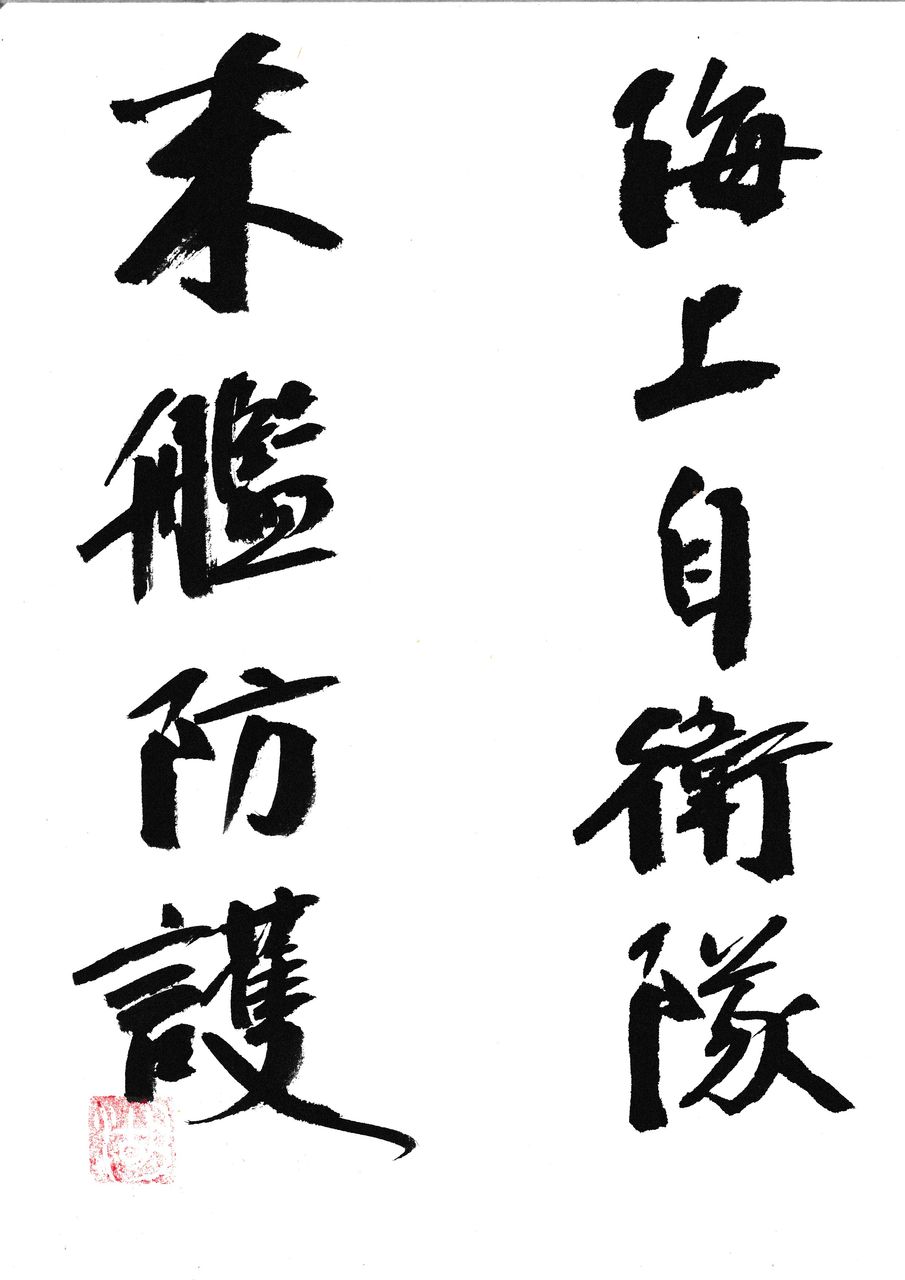 海上自衛隊
末艦防護